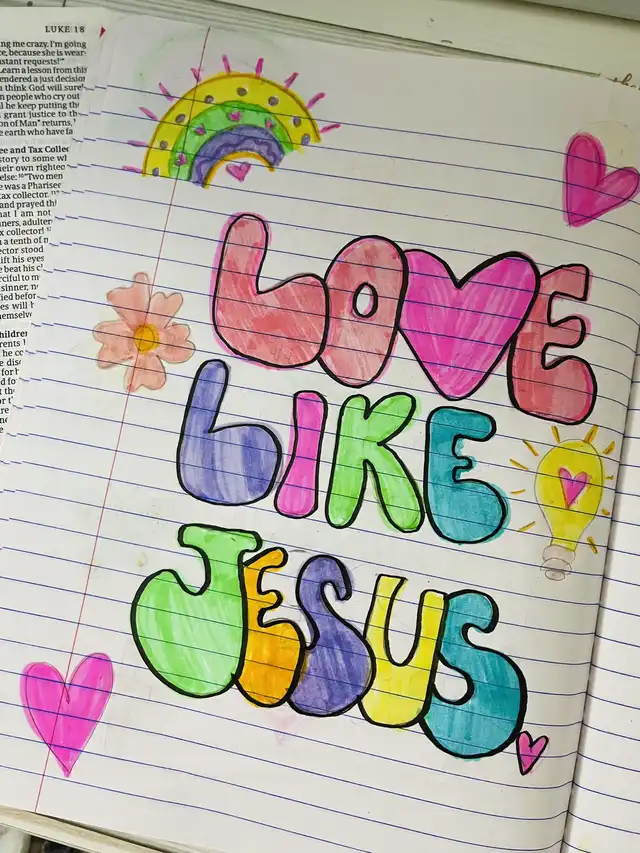 LUKE 18
ing me crazy. I'm going
ce, because she is wear
nstant requests!"
Learn a lesson from this
endered a just decision
think God will surel
n people who cry out
l he keep putting the
grant justice to th
on of Man returns,
e earth who have fa
ee and Tax Collec
story to some wh
heir own righteo
else: "Two men
e was a Pharisee
tax collector.
and prayed th
hat I am not
nners, adulter
x collector!
a tenth of m
ector stood
ift his eyes
e beat his c
rciful to m
sinner, n
fied befor
es will b
hemselve
hildren
rents
LOVE
LIKE
JESUS